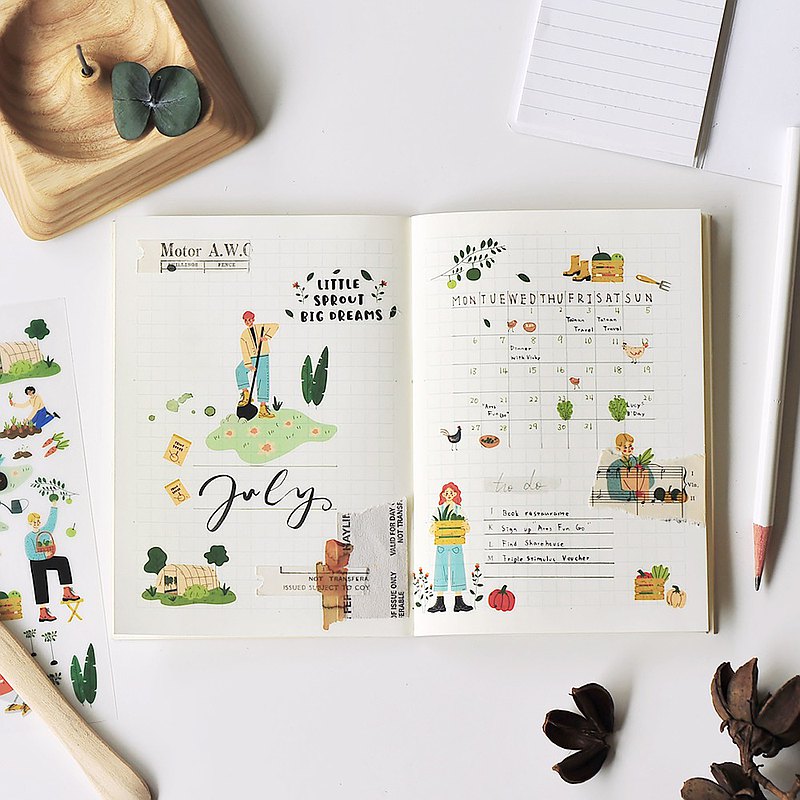 Motor A.W.
SHILLINGS PENCE
LITTLE
SPROUT
BIG DREAMS
July
NOT TRANSFERA
ISSUED SUBJECT TO
OF ISSUE ONLY
VALID FOR DAY
NOT TRANSF
MON TUE WED THU FRI SAT SUN
1 2 3 4 5
Tainan Travel
Tainan Travel
6 7 8 9 10 11
Dinner
with Vicky
13 14 15 16 17 18 19
20 21 22 23 24 25 26
"Ams
Fun Go"
"Lucy"
B'Day
27 28 29 30 31
to do
Book restaurame
Sign up "Ams Fun Go"
Find Sharehouse
Triple Stimulus Voucher